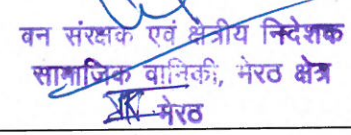 वन संरक्षक एवं क्षेत्रीय निदेशक
सामाजिक वानिकी, मेरठ क्षेत्र
मेरठ